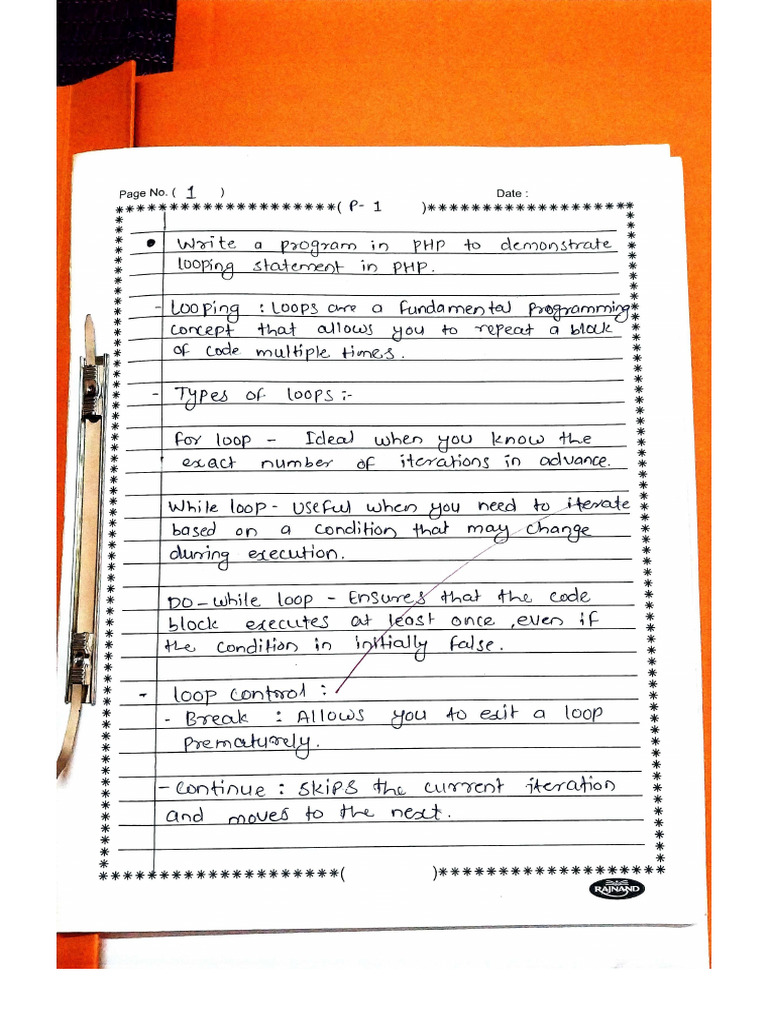 Page No. ( 1 ) Date :
( P- 1 )
• Write a program in PHP to demonstrate
looping statement in PHP.
- Looping : Loops are a fundamental programming
concept that allows you to repeat a block
of code multiple times.
- Types of loops :-
for loop - Ideal when you know the
exact number of iterations in advance.
While loop - Useful when you need to iterate
based on a condition that may change
during execution.
DO-while loop - Ensures that the code
block executes at least once, even if
the condition in initially false.
- loop control :
- Break : Allows you to exit a loop
prematurely.
- Continue : skips the current iteration
and moves to the next.
( )
RAJNAND